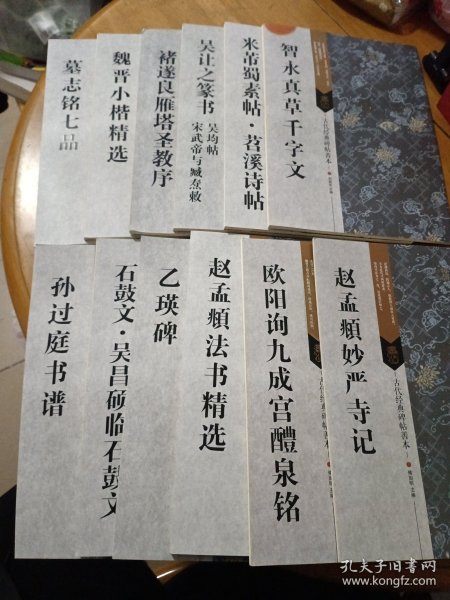 智永真草千字文
古代经典碑帖善本
米芾蜀素帖·苕溪诗帖
吴让之篆书
吴均帖
宋武帝与臧焘敕
褚遂良雁塔圣教序
魏晋小楷精选
墓志铭七品
赵孟頫妙严寺记
古代经典碑帖善本
欧阳询九成宫醴泉铭
古代经典碑帖善本
赵孟頫法书精选
乙瑛碑
石鼓文·吴昌硕临石鼓文
孙过庭书谱
孔夫子旧书网
www.kongfz.com